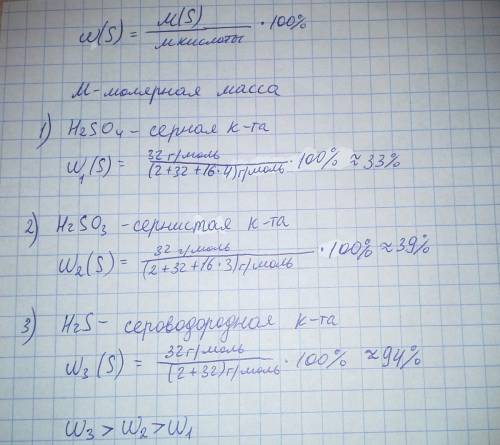 ω(S) = M(S) / M кислоты · 100%
М-молярная масса
1) H2SO4 - серная к-та
ω1(S) = 32 г/моль / (2+32+16·4) г/моль · 100% ≈ 33%
2) H2SO3 - сернистая к-та
ω2(S) = 32 г/моль / (2+32+16·3) г/моль · 100% ≈ 39%
3) H2S - сероводородная к-та
ω3(S) = 32 г/моль / (2+32) г/моль · 100% ≈ 94%
ω3 > ω2 > ω1